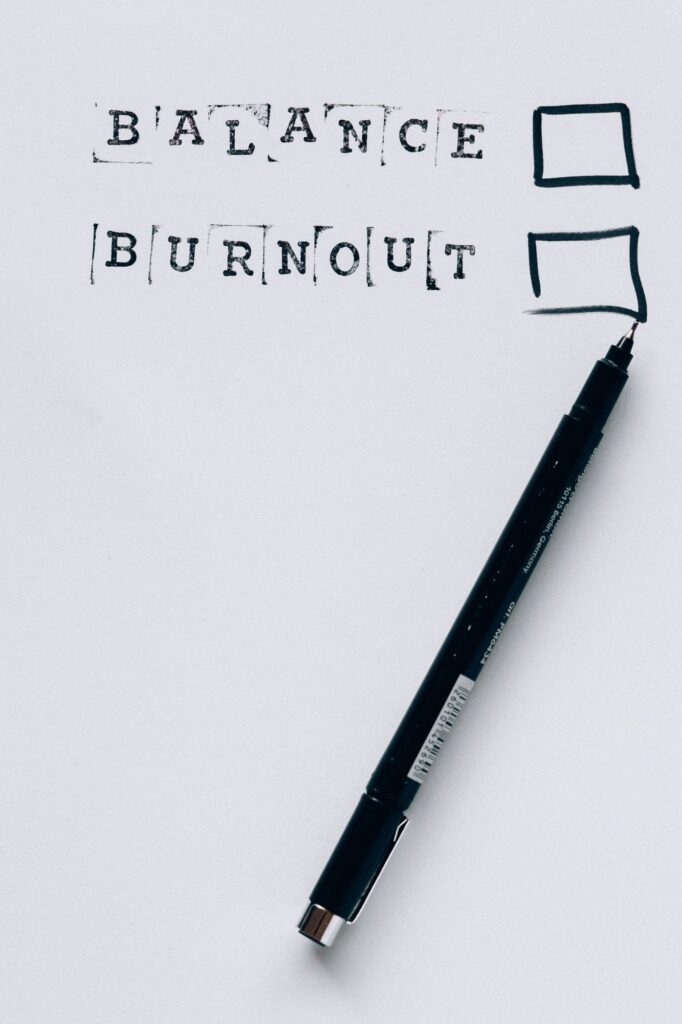 BALANCE
BURNOUT
10115 Berlin, Germany.
art. PM6434